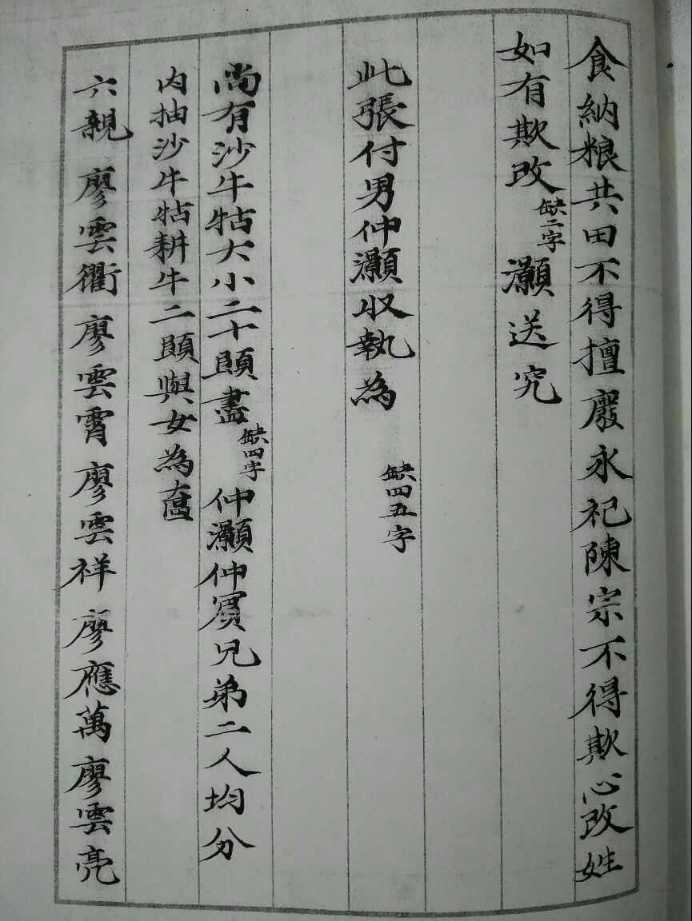 食納粮共田不得擅廢永祀陳宗不得欺心改姓
如有欺改缺二字灝送究
此張付男仲灝收執為 缺四五字
尚有沙牛牯大小二十頭盡缺四字仲灝仲賔兄弟二人均分
内抽沙牛牯耕牛二頭與女為奩
六親 廖雲衢 廖雲霄 廖雲祥 廖應萬 廖雲亮